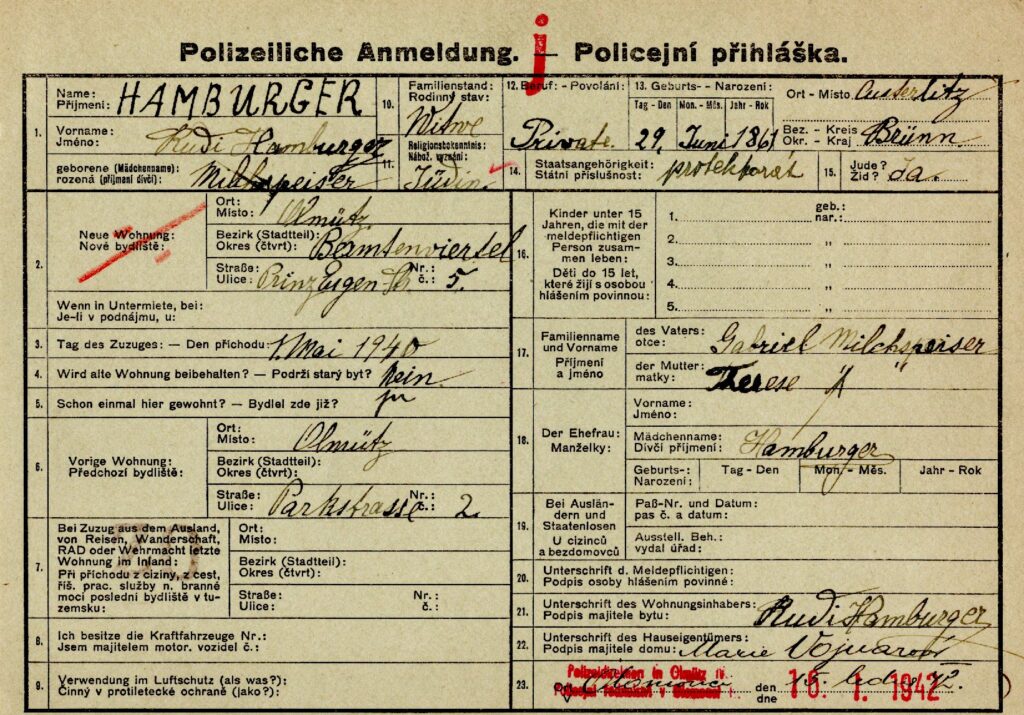 j
Polizeiliche Anmeldung. — Policejní přihláška.
1. Name: Příjmení: HAMBURGER
Vorname: Jméno: Rudi Hamburger
geborene (Mädchenname): rozená (příjmení dívčí): Milchspeiser
10. Familienstand: Rodinný stav: Witwe
11. Religionsbekenntnis: Nábož. vyznání: Jüdin
12. Beruf: - Povolání: Private.
13. Geburts- - Narození:
Tag - Den Mon. - Měs. Jahr - Rok
29. Juni 1861
Ort - Místo Austerlitz
Bez. - Kreis
Okr. - Kraj Brünn.
14. Staatsangehörigkeit:
Státní příslušnost: protektorát
15. Jude? Žid? Ja.
2. Neue Wohnung:
Nové bydliště:
Ort: Místo: Olmütz
Bezirk (Stadtteil):
Okres (čtvrť): Beamtenviertel
Straße: Ulice: Prinz Eugen Str. Nr.: č.: 5.
Wenn in Untermiete, bei:
Je-li v podnájmu, u:
3. Tag des Zuzuges: — Den příchodu: 1. Mai 1940
4. Wird alte Wohnung beibehalten? — Podrží starý byt? nein
5. Schon einmal hier gewohnt? — Bydlel zde již? ja
6. Vorige Wohnung:
Předchozí bydliště:
Ort: Místo: Olmütz
Bezirk (Stadtteil):
Okres (čtvrť):
Straße: Ulice: Parkstrasse Nr.: č.: 2.
7. Bei Zuzug aus dem Ausland,
von Reisen, Wanderschaft,
RAD oder Wehrmacht letzte
Wohnung im Inland:
Při příchodu z ciziny, z cest,
říš. prac. služby n. branné
moci poslední bydliště v tu-
zemsku:
Ort:
Místo:
Bezirk (Stadtteil):
Okres (čtvrť):
Straße: Nr.:
Ulice: č.:
8. Ich besitze die Kraftfahrzeuge Nr.:
Jsem majitelem motor. vozidel č.:
9. Verwendung im Luftschutz (als was?):
Činný v protiletecké ochraně (jako?):
16. Kinder unter 15
Jahren, die mit der
meldepflichtigen
Person zusam-
men leben:
Děti do 15 let,
které žijí s osobou
hlášením povinnou:
1. geb.: nar.:
2. „
3. „
4. „
5. „
17. Familienname
und Vorname
Příjmení
a jméno
des Vaters:
otce: Gabriel Milchspeiser
der Mutter:
matky: Therese „
18. Der Ehefrau:
Manželky:
Vorname:
Jméno:
Mädchenname:
Dívčí příjmení: Hamburger
Geburts-: Narození: Tag - Den Mon. - Měs. Jahr - Rok
19. Bei Auslän-
dern und
Staatenlosen
U cizinců
a bezdomovců
Paß-Nr. und Datum:
pas č. a datum:
Ausstell. Beh.:
vydal úřad:
20. Unterschrift d. Meldepflichtigen:
Podpis osoby hlášením povinné:
21. Unterschrift des Wohnungsinhabers:
Podpis majitele bytu: Rudi Hamburger
22. Unterschrift des Hauseigentümers:
Podpis majitele domu: Marie
23. Polizeidirektion in Olmütz IV
Olomouci den dne 15. led. 42.
16. 1. 1942